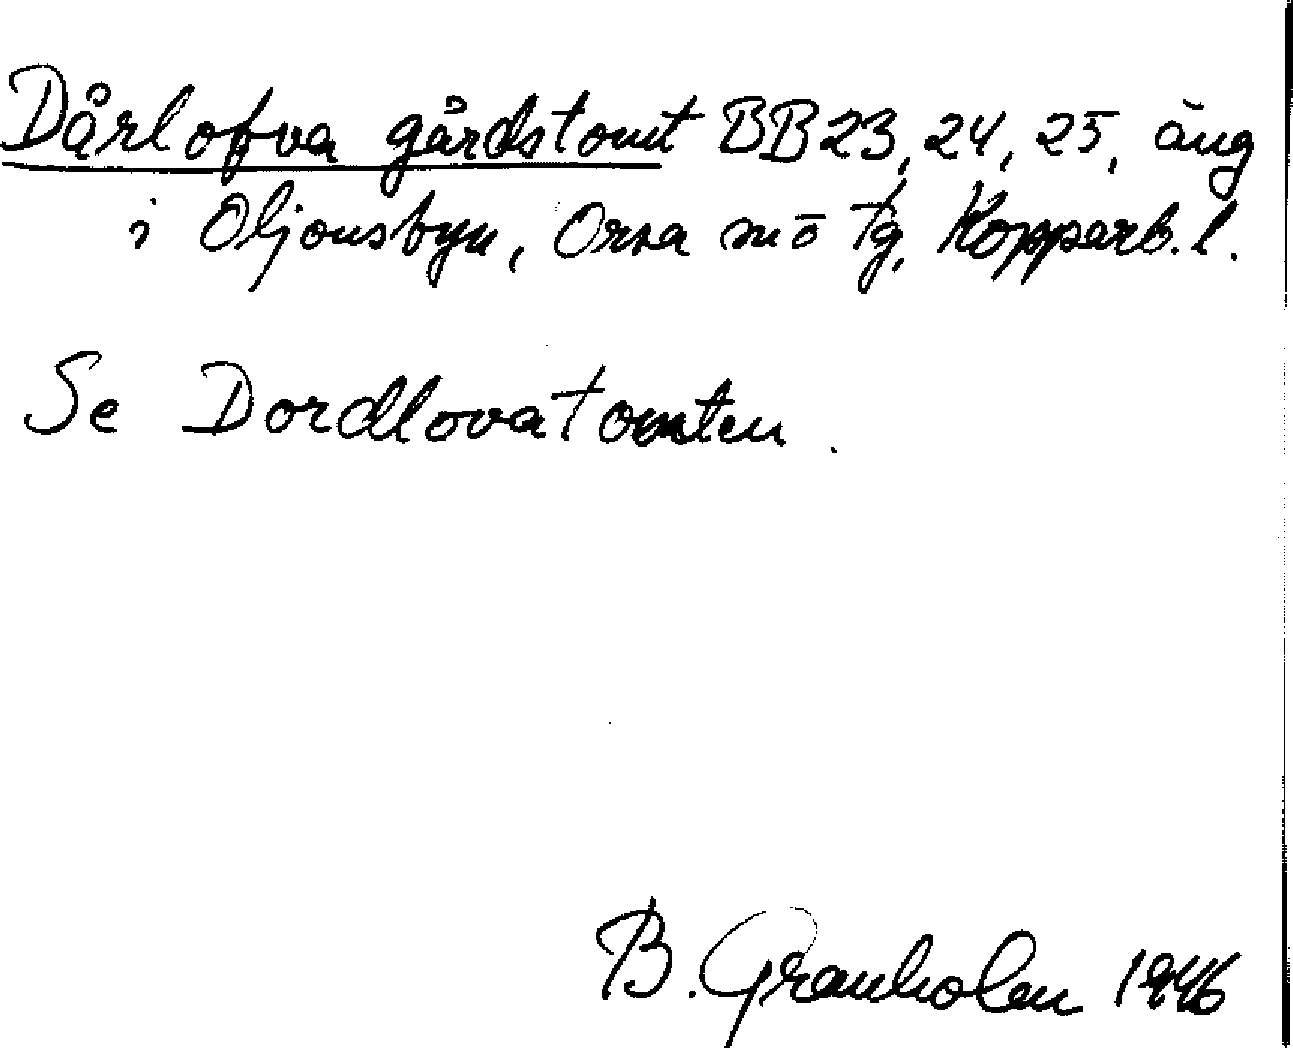 Dårlofva gårdstomt BB23, 24, 25, äng
i Oljonsbyn, Orsa sn ö Tg, Kopparb. l.
Se Dordlovatomten.
B. Granholm 1946